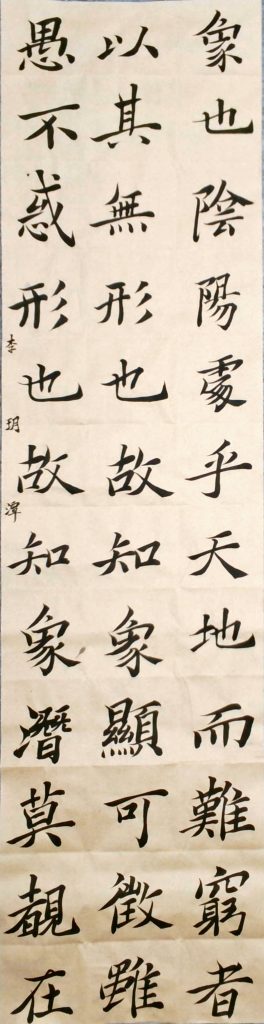 象也陰陽處乎天地而難窮者
以其無形也故知象顯可徵雖
愚不惑形也故知象潛莫覩在
李玥潭